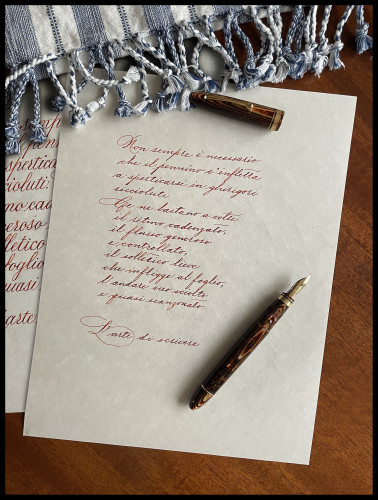 Non sempre è necessario
che il pennino s'infletta
a sperticarsi in ghirigori
riccioluti.
Ce ne bastano a volte
il ritmo cadenzato,
il flusso generoso
e controllato,
il solletico lieve
che infligge al foglio,
l'andare suo sciolto
e quasi scanzonato.
L'arte di scrivere
cioluti.
eroso
lletico
foglio
quasi
arte